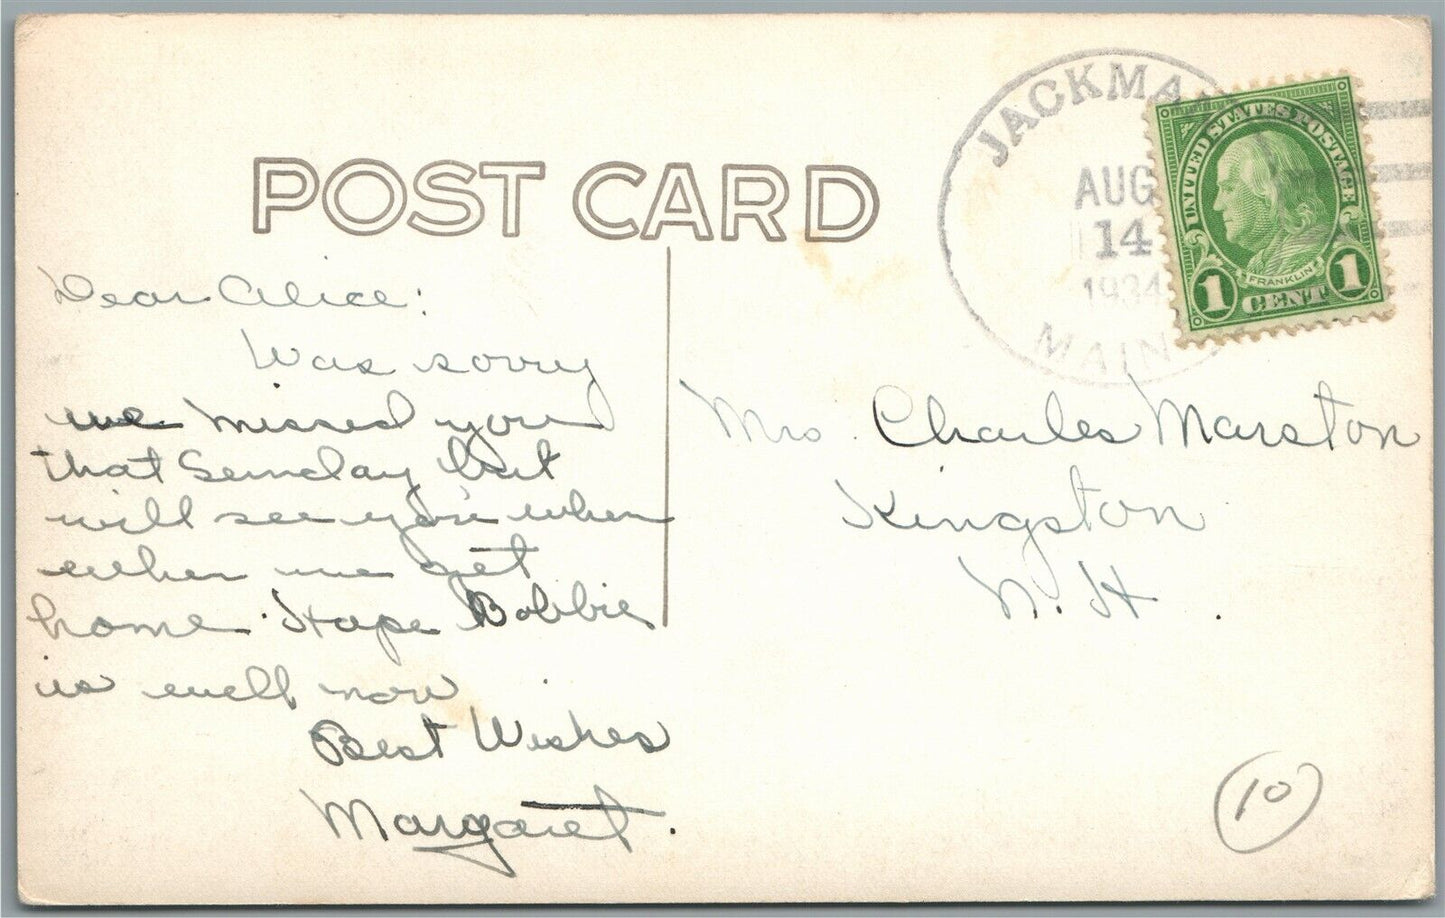 POST CARD
JACKMA
AUG
14
1934
MAIN
UNITED STATES POSTAGE
FRANKLIN
1 CENT 1
Dear Alice:
Was sorry
we missed you
that Sunday but
will see you when
when we get
home. Hope Bobbie
is well now.
Best Wishes
Margaret.
Mrs. Charles Marston
Kingston
N. H.
10